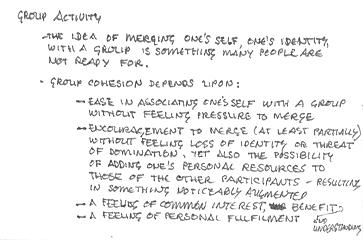 GROUP ACTIVITY
- THE IDEA OF MERGING ONE'S SELF, ONE'S IDENTITY,
WITH A GROUP IS SOMETHING MANY PEOPLE ARE
NOT READY FOR.
- GROUP COHESION DEPENDS UPON:
- EASE IN ASSOCIATING ONE'S SELF WITH A GROUP
WITHOUT FEELING PRESSURE TO MERGE
- ENCOURAGEMENT TO MERGE (AT LEAST PARTIALLY)
WITHOUT FEELING LOSS OF IDENTITY OR THREAT
OF DOMINATION. YET ALSO THE POSSIBILITY
OF ADDING ONE'S PERSONAL RESOURCES TO
THOSE OF THE OTHER PARTICIPANTS - RESULTING
IN SOMETHING NOTICEABLY AUGMENTED
- A FEELING OF COMMON INTEREST, BENEFIT
- A FEELING OF PERSONAL FULFILMENT AND
UNDERSTANDING